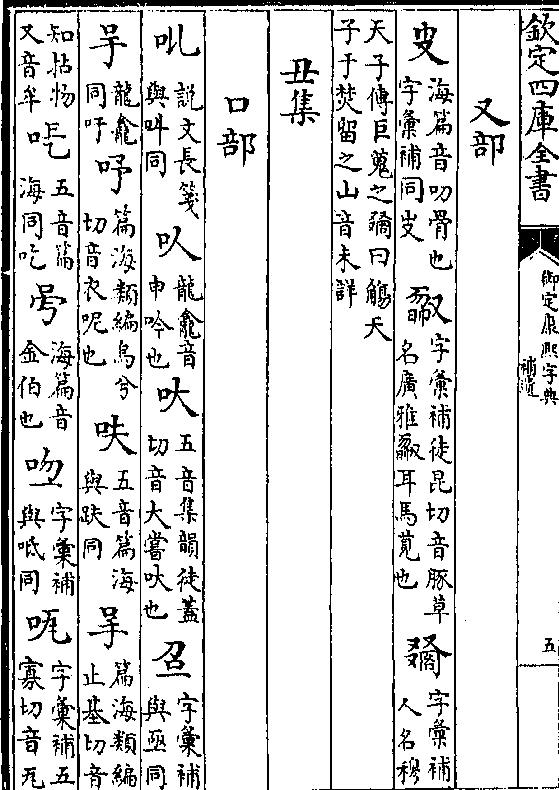 欽定四庫全書
御定康熙字典
補遺
五
又部
海篇音叨骨也
字彙補同㕞
字彙補徒昆切音豚草
名廣雅 耳馬莧也
字彙補
人名穆
天子傳巨蒐之 曰觴天
子于焚留之山音未詳
丑集
口部
吼 說文長箋
與叫同
㕥 龍龕音
申吟也
吠 五音集韻徒蓋
切音大嘗吠也
字彙補
與亟同
龍龕
同吁
吁 篇海類編烏兮
切音衣呢也
呋 五音篇海
與趺同
篇海類編
止基切音
知拈物
又音牟
五音篇
海同吃
海篇音
金伯也
字彙補
與呧同
字彙補五
寡切音瓦